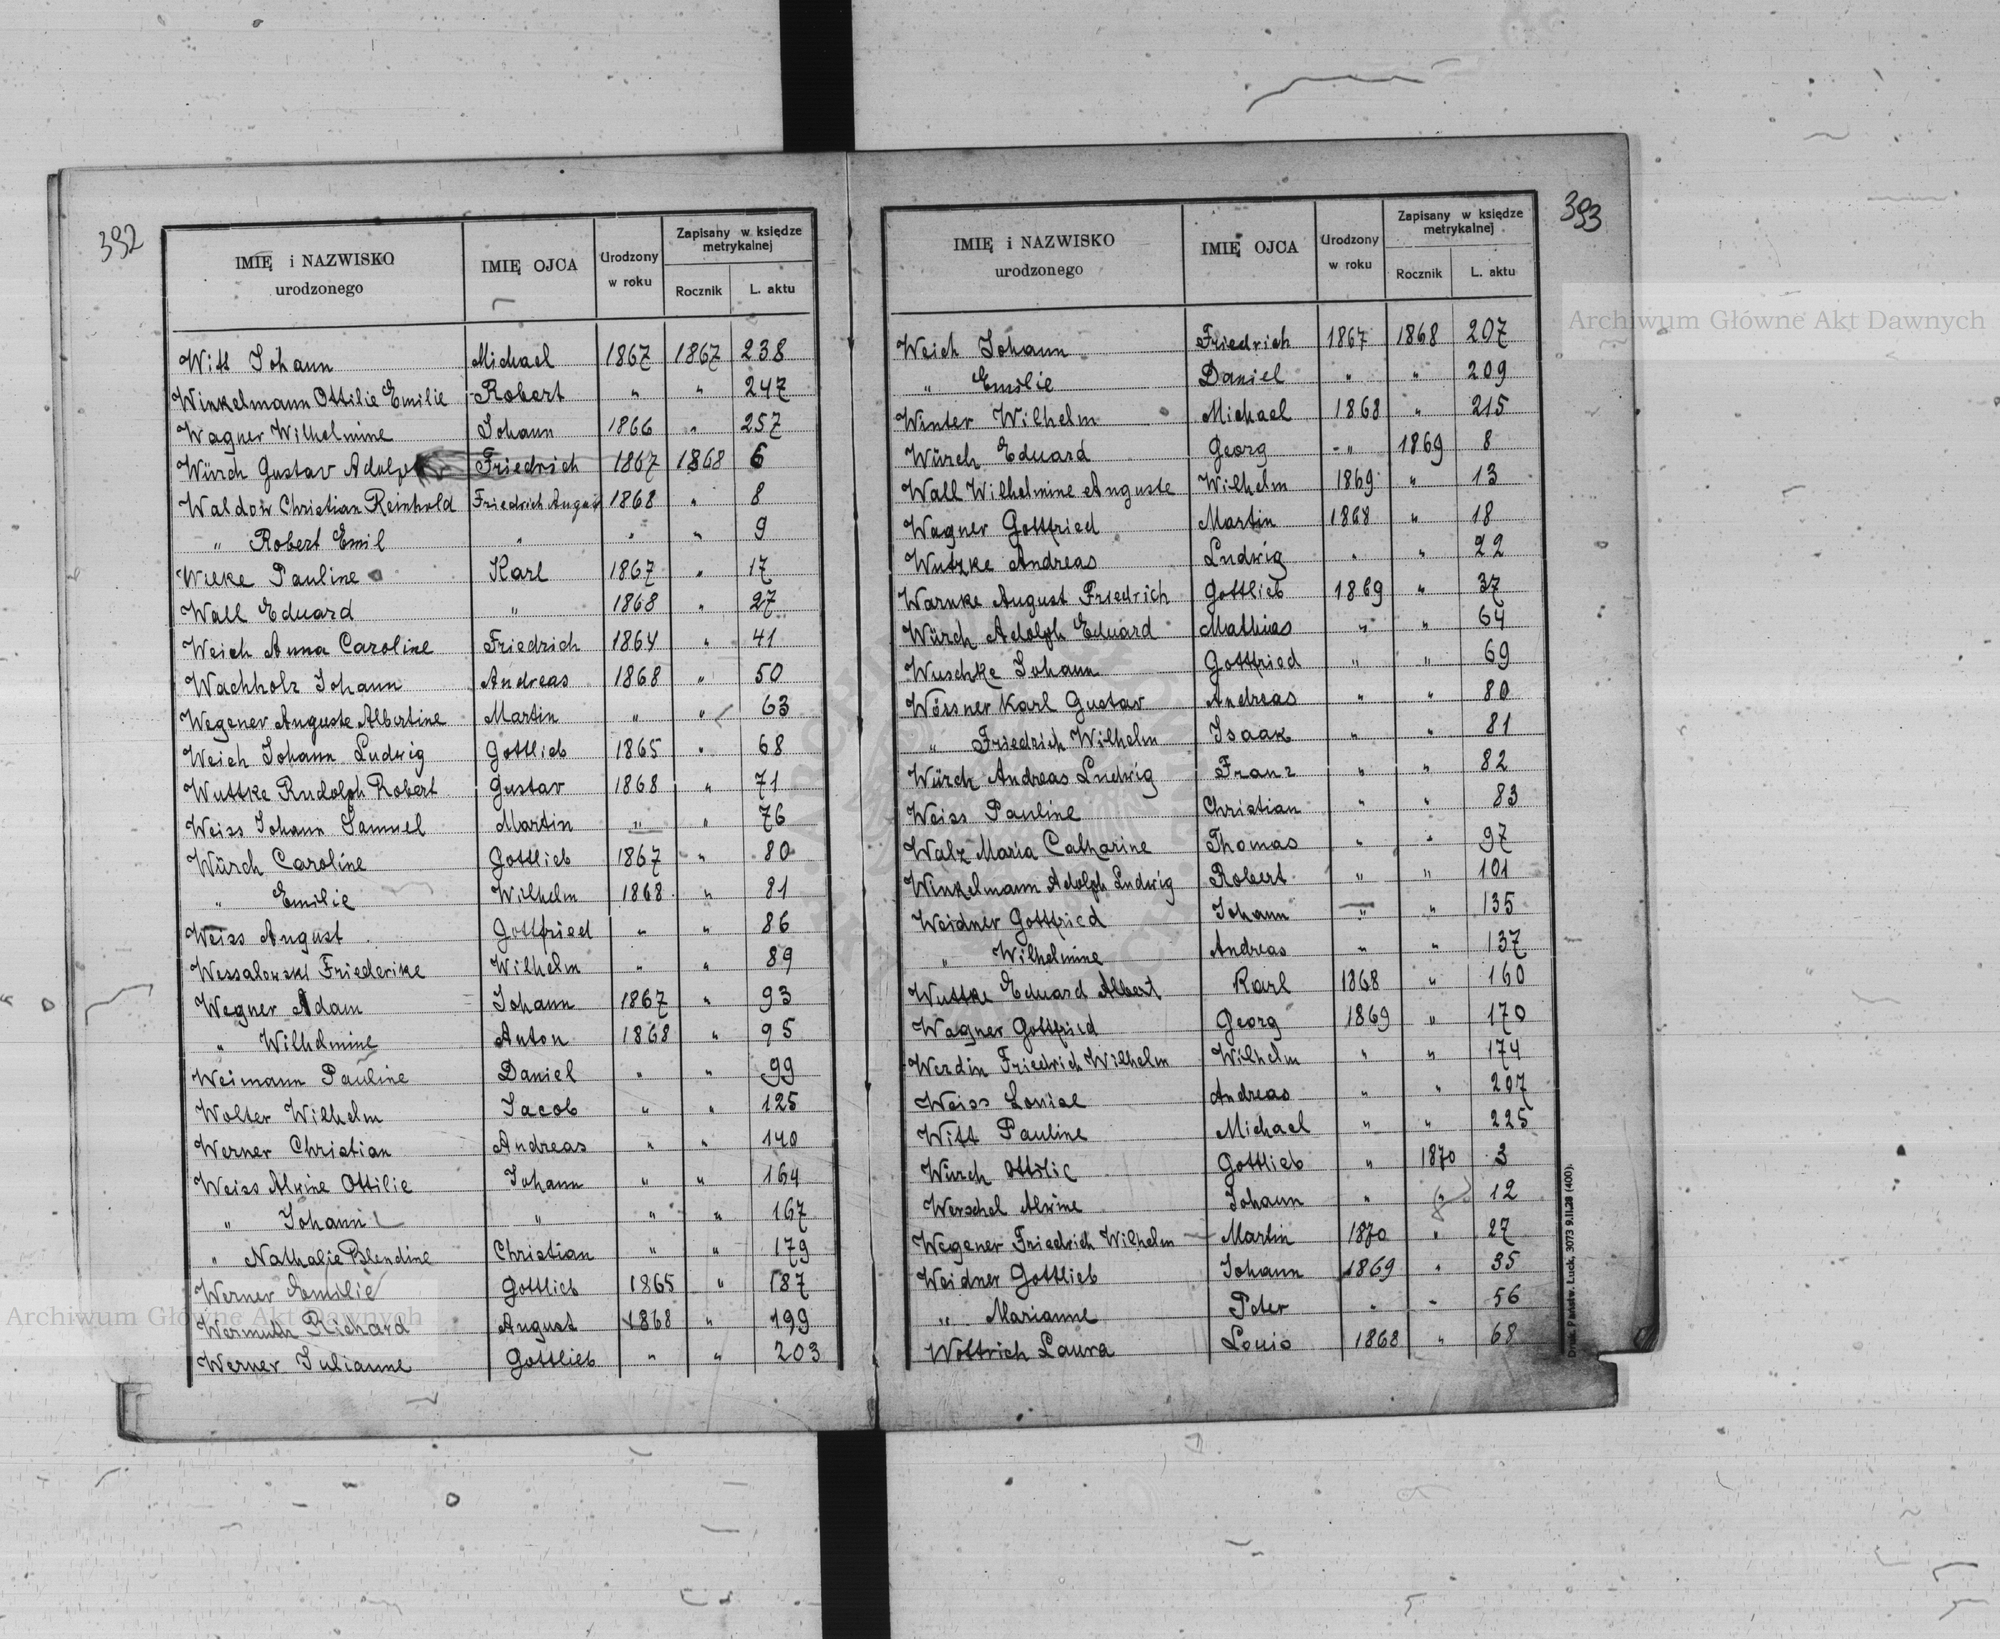 392
IMIĘ i NAZWISKO urodzonego IMIĘ OJCA Urodzony w roku Zapisany w księdze metrykalnej Rocznik L. aktu
Witt Johann Michael 1867 1867 238
Winkelmann Ottilie Emilie Robert " " 247
Wagner Wilhelmine Johann 1866 " 257
Würch Gustav Adolph Friedrich 1867 1868 6
Waldow Christian Reinhold Friedrich August 1868 " 8
" Robert Emil " " " 9
Wilke Pauline Karl 1867 " 17
Wall Eduard " 1868 " 27
Weich Anna Caroline Friedrich 1864 " 41
Wachholz Johann Andreas 1868 " 50
Wegener Auguste Albertine Martin " " 63
Weich Johann Ludwig Gottlieb 1865 " 68
Wuttke Rudolph Robert Gustav 1868 " 71
Weiss Johann Samuel Martin " " 76
Würch Caroline Gottlieb 1867 " 80
" Emilie Wilhelm 1868 " 81
Weiss August Gottfried " " 86
Wessalowski Friederike Wilhelm " " 89
Wegner Adam Johann 1867 " 93
" Wilhelmine Anton 1868 " 95
Weimann Pauline Daniel " " 99
Wolter Wilhelm Jacob " " 125
Werner Christian Andreas " " 140
Weiss Alwine Ottilie Johann " " 164
" Johann " " " 167
" Nathalie Blendine Christian " " 179
Werner Emilie Gottlieb 1865 " 187
Wermuth Richard August 1868 " 199
Werner Julianne Gottlieb " " 203
393
IMIĘ i NAZWISKO urodzonego IMIĘ OJCA Urodzony w roku Zapisany w księdze metrykalnej Rocznik L. aktu
Weich Johann Friedrich 1867 1868 207
" Emilie Daniel " " 209
Winter Wilhelm Michael 1868 " 215
Würch Eduard Georg " 1869 8
Wall Wilhelmine Auguste Wilhelm 1869 " 13
Wagner Gottfried Martin 1868 " 18
Wutzke Andreas Ludwig " " 22
Warnke August Friedrich Gottlieb 1869 " 37
Würch Adolph Eduard Mathias " " 64
Wuschke Johann Gottfried " " 69
Wössner Karl Gustav Andreas " " 80
" Friedrich Wilhelm Isaak " " 81
Würch Andreas Ludwig Franz " " 82
Weiss Pauline Christian " " 83
Walz Maria Catharine Thomas " " 97
Winkelmann Adolph Ludwig Robert " " 101
Weidner Gottfried Johann " " 135
" Wilhelmine Andreas " " 137
Wuttke Eduard Albert Karl 1868 " 160
Wagner Gottfried Georg 1869 " 170
Werdin Friedrich Wilhelm Wilhelm " " 174
Weiss Louise Andreas " " 207
Witt Pauline Michael " " 225
Würch Ottilie Gottlieb " 1870 3
Werschel Alwine Johann " " 12
Wegener Friedrich Wilhelm Martin 1870 " 27
Weidner Gottlieb Johann 1869 " 35
" Marianne Peter " " 56
Wottrich Laura Louis 1868 " 68
Druk. Państw. Łuck, 3073 9.II.28 (400).
Archiwum Główne Akt Dawnych
Archiwum Główne Akt Dawnych